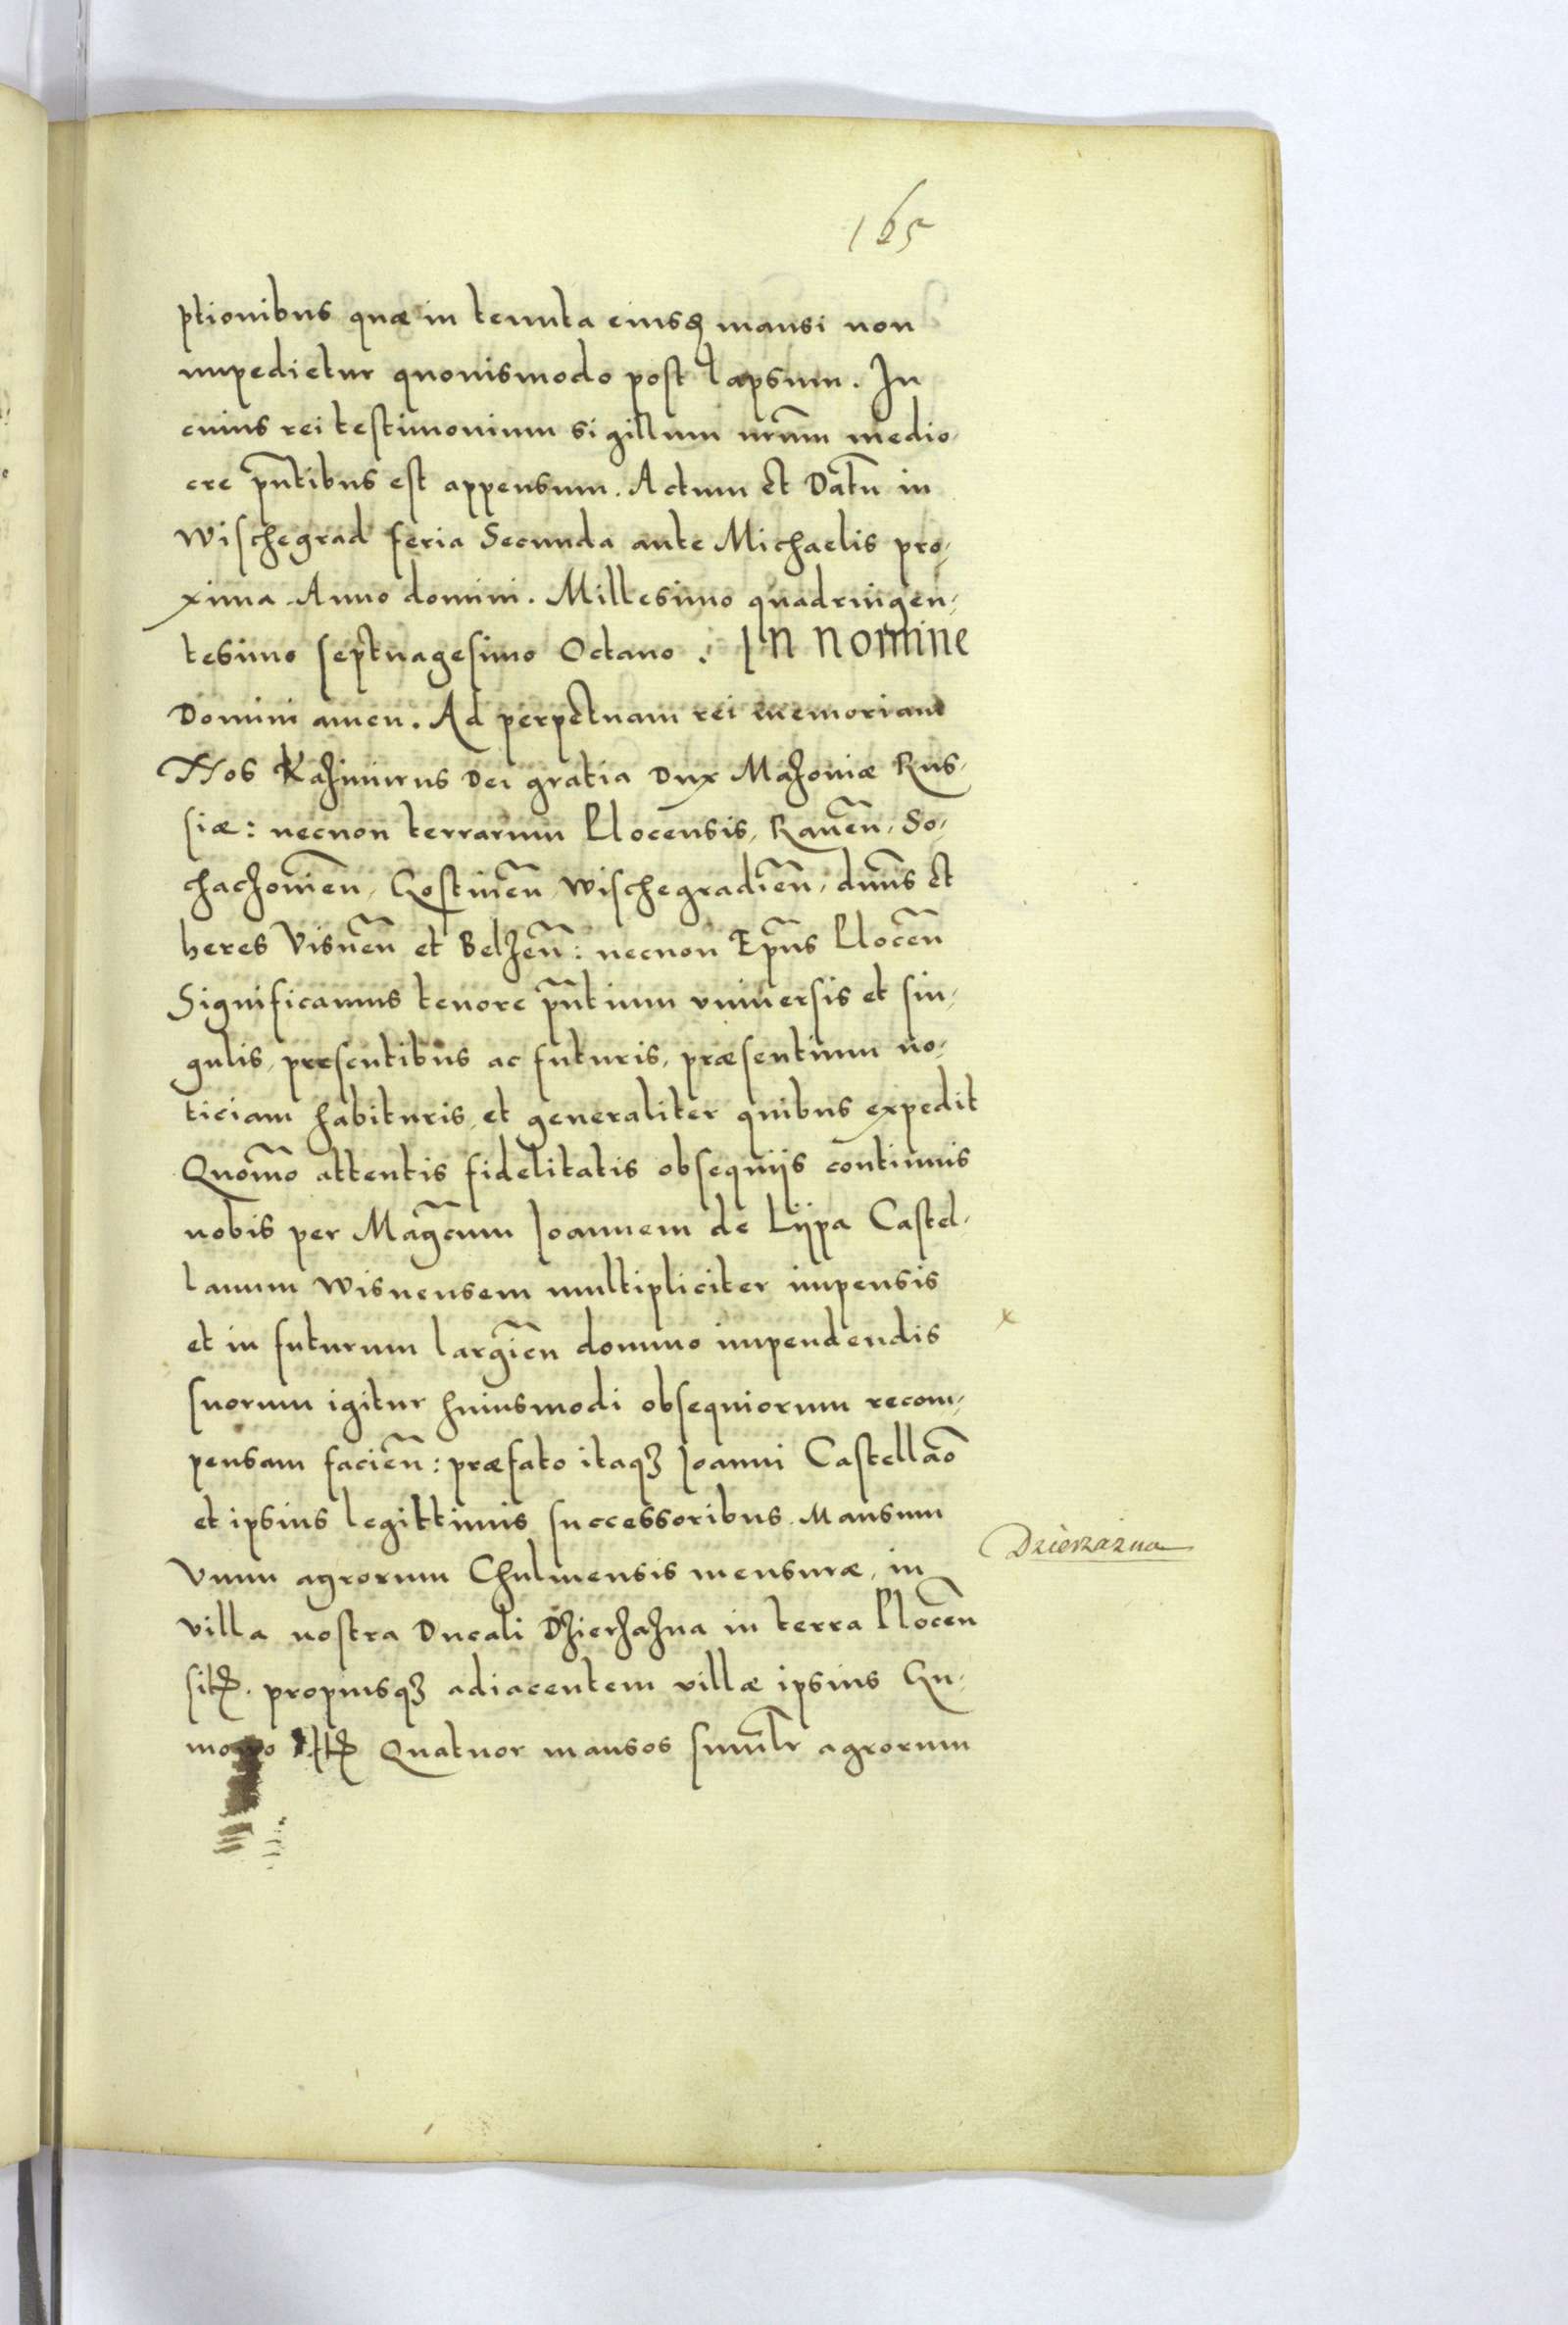 165
ptionibus quæ in tenuta eiusđ mansi non
impedietur quouismodo post lapsum. In
cuius rei testimonium sigillum nr̃um medio,
cre pñtibus est appensum. Actum et Datũ in
Wischegrad feria Secunda ante Michaelis pro,
xima Anno domini. Millesimo quadringen,
tesimo septuagesimo Octauo. In nomine
Domini amen. Ad perpetuam rei memoriam
Nos Kazimirus Dei gratia Dux Mazouiæ Rus,
siæ: necnon terrarum Plocensis, Raueñ, So,
chaczouieñ, Gostineñ, Wischegradieñ, dñus et
heres Visneñ et Belzeñ: necnon Ep̃us Ploceñ
Significamus tenore pñtium vniuersis et sin,
gulis, presentibus ac futuris, præsentium no,
ticiam habituris, et generaliter quibus expedit
Quom̃o attentis fidelitatis obsequijs continuis
nobis per Mag̃cum Joannem de Lijpa Castel,
lanum Wisnensem multipliciter impensis
et in futurum largieñ domino impendendis
suorum igitur huiusmodi obsequiorum recom,
pensam facieñ: præfato itaqꝫ Joanni Castellão
et ipsius legittimis successoribus. Mansum
Vnum agrorum Chulmensis mensuræ, in
Dzierzazna
villa nostra Ducali Dzierzazna in terra Ploceñ
sitꝫ. propiusqꝫ adiacentem villæ ipsius Gu,
Quatuor mansos simil̃r agrorum